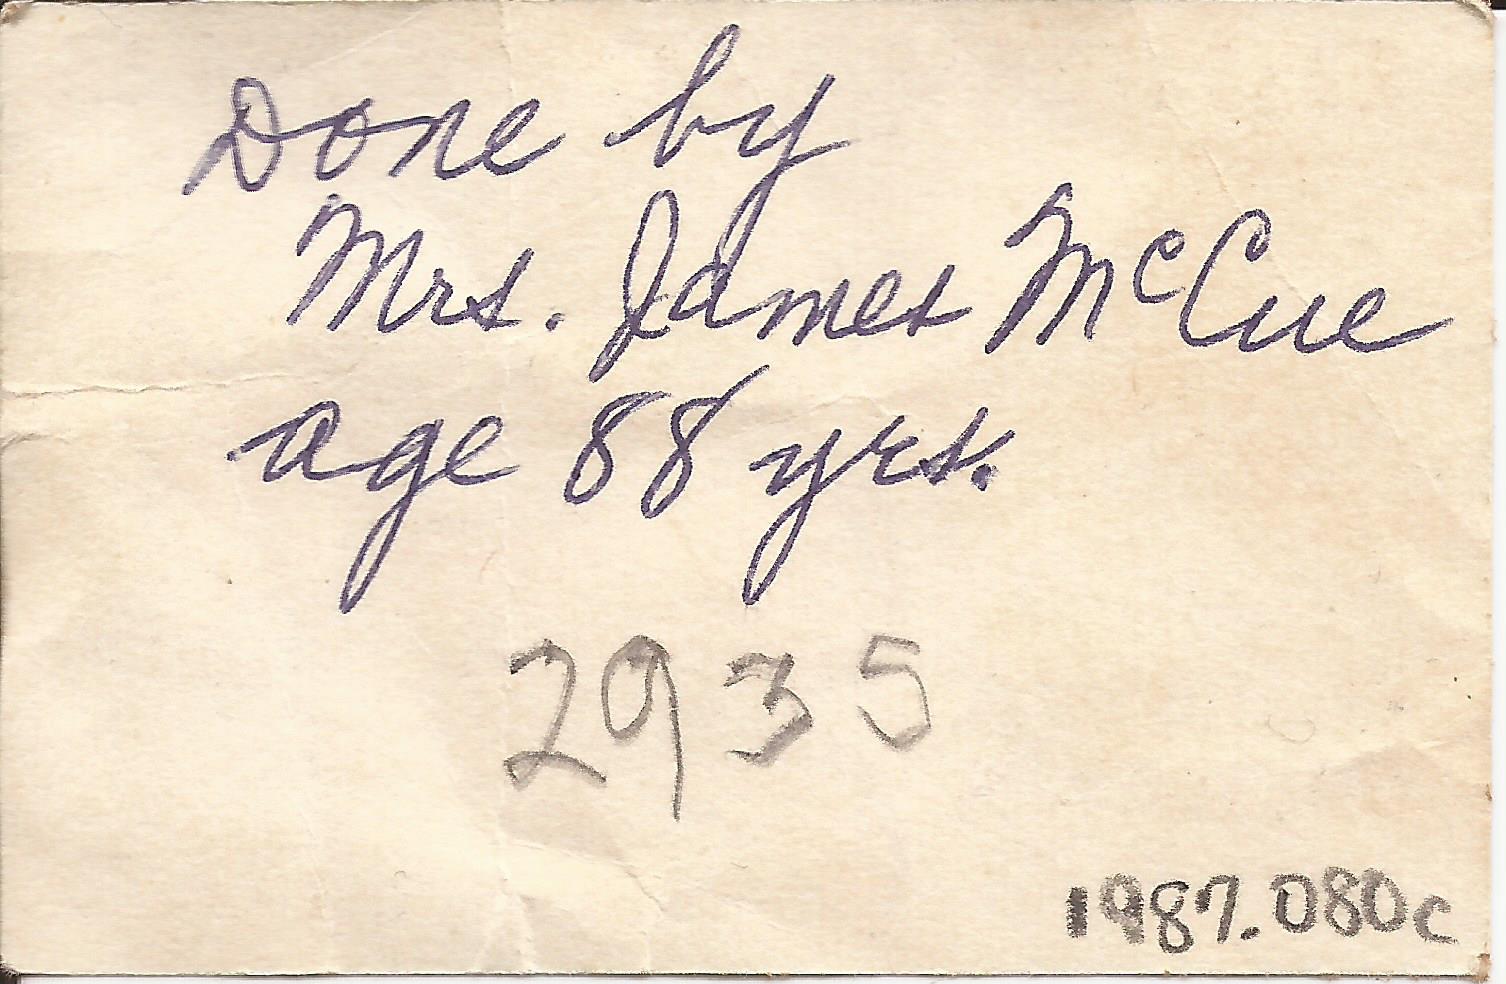 Done by
Mrs. James McCue
age 88 yrs.
2935
1987.080c